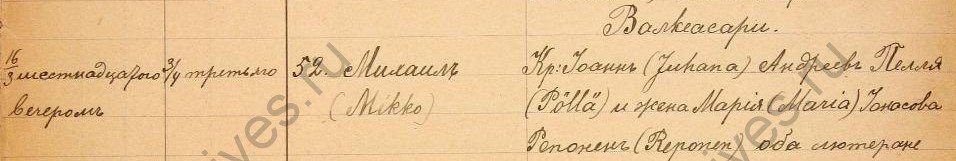 Валкеасари.
16/3 шестнадцатого 3/4 третьяго 52. Михаилъ Кр: Іоаннъ (Juhana) Андреевъ Пелля
вечеромъ (Mikko) (Pöllä) и жена Марія (Maria) Іонасова
Репоненъ (Reponen) оба лютеране